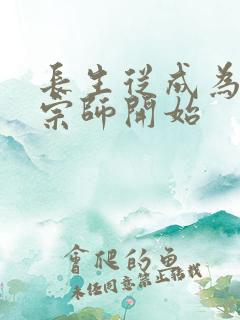 長生從成為
宗師開始
會爬的魚
未經同意禁止轉載